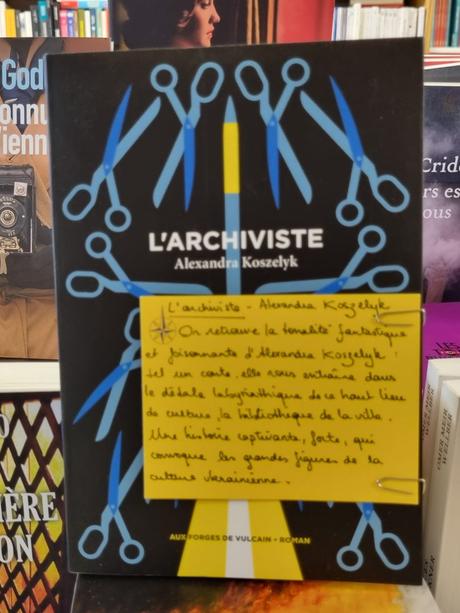 God
onnu
Vienn
L'ARCHIVISTE
Alexandra Koszelyk
L'archiviste - Alexandra Koszelyk
On retrouve la tonalité fantastique
et foisonnante d'Alexandra Koszelyk :
tel un conte, elle nous entraîne dans
le dédale labyrinthique de ce haut lieu
de culture, la bibliothèque de la ville.
Une histoire captivante, forte, qui
convoque les grandes figures de la
culture ukrainienne.
AUX FORGES DE VULCAIN • ROMAN
Crida
rs es
ous
IÈRE
ON
OMER MEIR
WELLBER